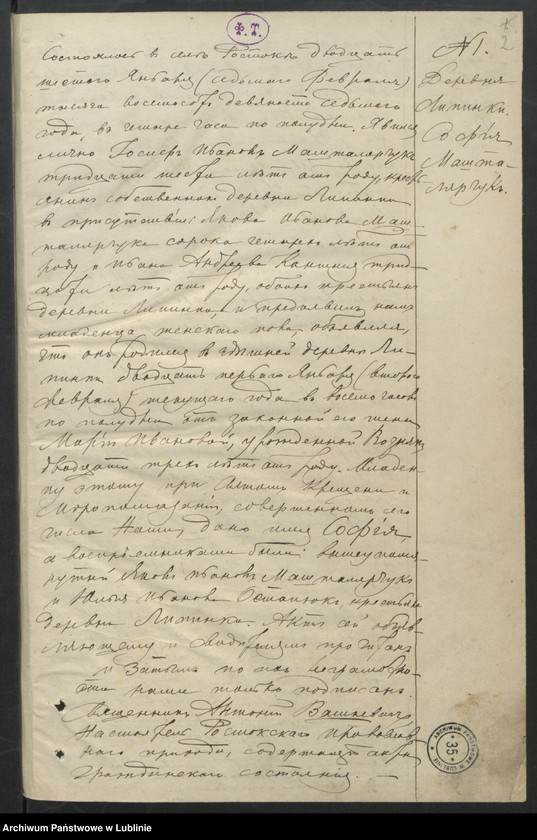 Ф. Т.
2
№ 1.
Деревня
Липинки.
Софія
Машта-
лярчукъ.
Состоялось въ селѣ Ростокѣ двадцать
шестаго Января (седьмаго Февраля)
тысяча восемьсотъ девяносто седьмаго
года, въ четыре часа по полудни. Явился
лично Іосифъ Ивановъ Машталярчукъ
тридцати лѣтъ отъ роду, кресть-
янинъ собственникъ деревни Липинки
въ присутствіи: Якова Иванова Маш-
талярчука сорока четырехъ лѣтъ отъ
роду и Ивана Андреева трид-
цати лѣтъ отъ роду, обоихъ крестьянъ
деревни Липинки, и предъявилъ намъ
младенца женскаго пола, объявляя,
что онъ родился въ здѣшней деревнѣ Ли-
пинки двадцать перваго Января (втораго
Февраля) текущаго года въ восемь часовъ
по полудни отъ законной его жены
Маріи Ивановой, урожденной Вознякъ
двадцати трехъ лѣтъ отъ роду. Младен-
цу этому при Святомъ Крещеніи и
Миропомазаніи, совершенномъ сего
числа Нами, дано имя Софія,
а воспріемниками были: вышеупомя-
нутый Яковъ Ивановъ Машталярчукъ
и Юлія Иванова Остапюкъ, крестьяне
деревни Липинки. Актъ сей объяв-
ляющему и свидѣтелямъ прочитанъ
и затѣмъ по ихъ неграмотно-
сти нами только подписанъ.
Священникъ Антоній Вашкевичъ
Настоятель Ростокскаго православ-
наго прихода, содержащій акты
гражданскаго состоянія. —
ARCHIWUM PAŃSTWOWE W LUBLINIE
35
Archiwum Państwowe w Lublinie